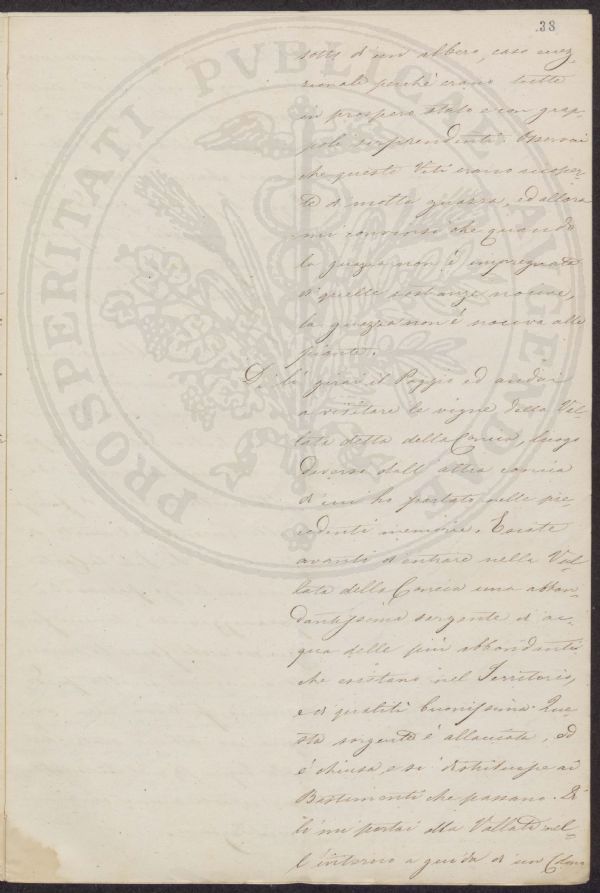 38
sotto d'un albero, caso ecce-
zionale perchè erano tutte
in prospero stato e con grap-
poli sorprendenti. Osservai
che queste Viti erano ricoper-
te di molta guazza, ed allora
mi convinsi che quando
la guazza non è impregnata
di quelle sostanze nocive,
la guazza non è nociva alle
piante.
Di là girai il Poggio ed andai
a visitare le vigne della Val-
lata detta della Concia, luogo
diverso dall'altra concia
di cui ho parlato nelle pre-
cedenti memorie. Esiste
avanti d'entrare nella Val-
lata della Concia una abbon-
dantissima sorgente di ac-
qua delle più abbondanti
che esistano nel Territorio,
e di qualità buonissima. Que-
sta sorgente è allacciata, ed
è chiusa, e si distribuisce ai
Bastimenti che passano. Di
lì mi portai alla Vallata nel-
l'interno a guida di un Colono
PROSPERITATI PVBLICAE AVGENDAE